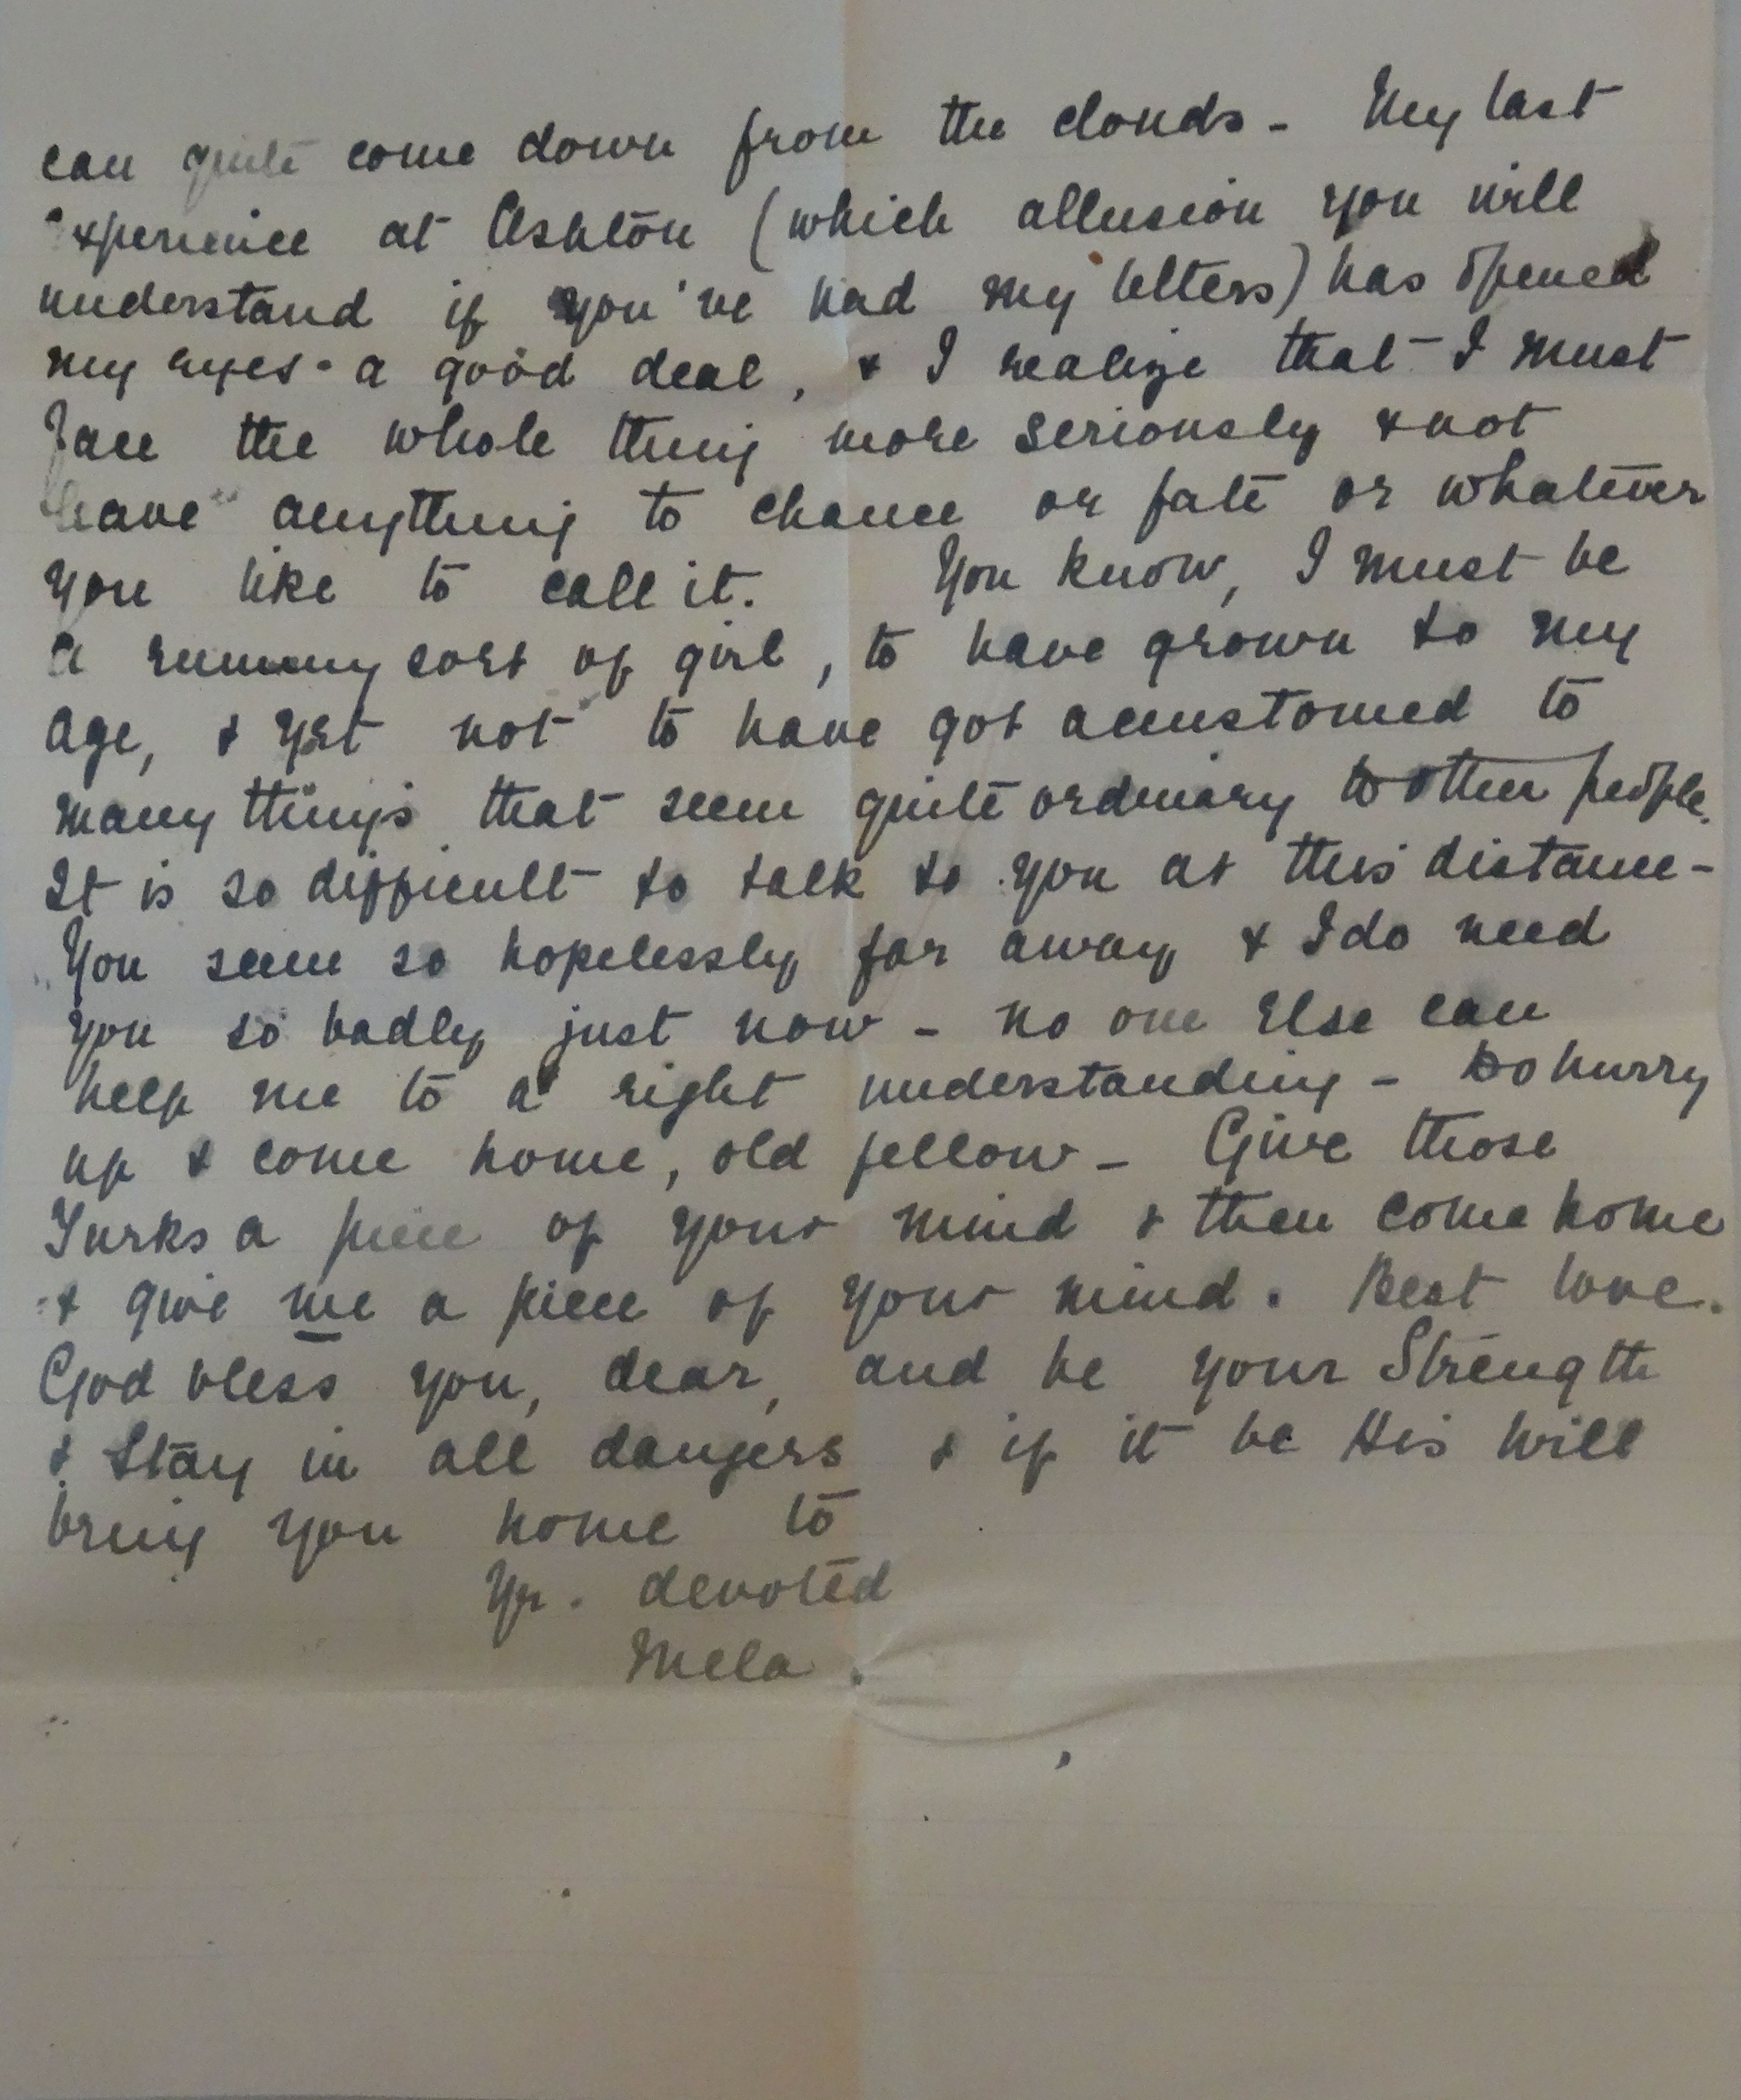 can quite come down from the clouds - My last
experience at Ashton (which allusion you will
understand if you've had my letters) has opened
my eyes a good deal, & I realize that I must
face the whole thing more seriously & not
leave anything to chance or fate or whatever
you like to call it. You know, I must be
a rummy sort of girl, to have grown to my
age, & yet not to have got accustomed to
many things that seem quite ordinary to other people.
It is so difficult to talk to you at this distance -
You seem so hopelessly far away & I do need
you so badly just now - no one else can
help me to a right understanding - Do hurry
up & come home, old fellow - Give those
Turks a piece of your mind & then come home
& give me a piece of your mind. Best love.
God bless you, dear, and be your Strength
& Stay in all dangers & if it be His will
bring you home to
Yr. devoted
Mela.